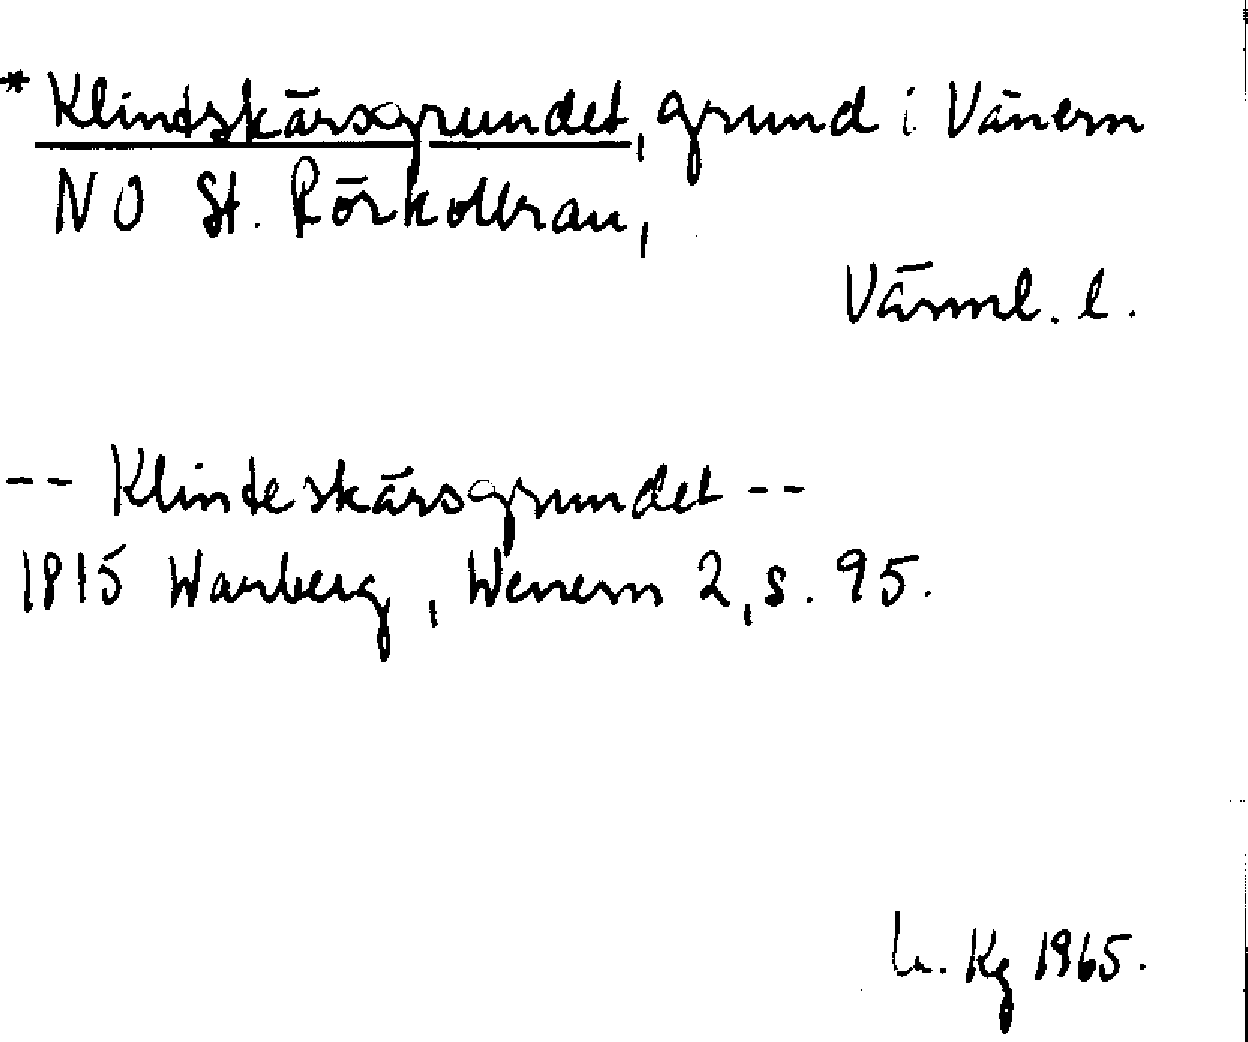 * Klintskärsgrundet, grund i Vänern
NO St. Rörkobbran,
Värml. l.
-- Klinteskärsgrundet --
1815 Warberg, Wenern 2, s. 95.
Kg 1965.